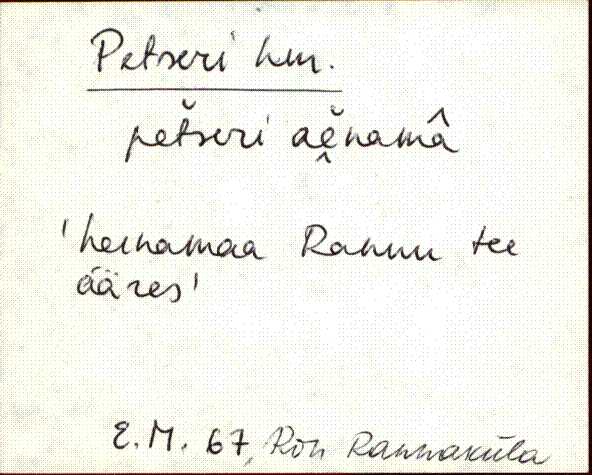 Petseri hm.
pĕtseri aḙ̆namâ
'heinamaa Rannu tee
ääres'
E.M. 67, Rõn Rannaküla